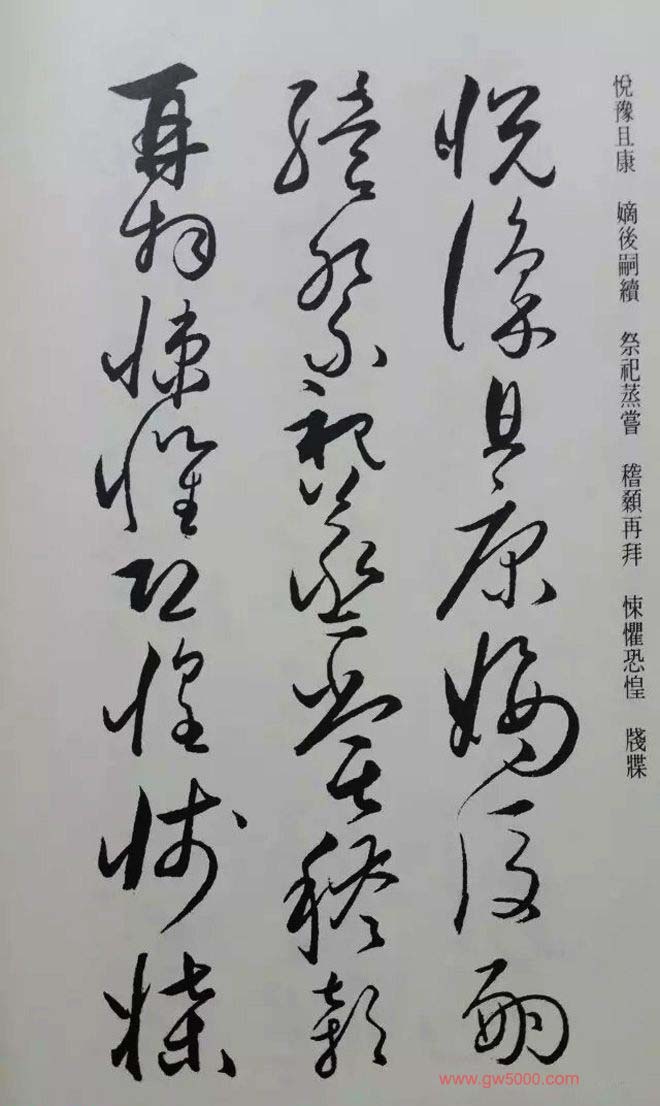 悅豫且康　嫡後嗣續　祭祀蒸嘗　稽顙再拜　悚懼恐惶　牋牒
悅豫且康嫡後嗣
續祭祀蒸嘗稽顙
再拜悚懼恐惶牋牒
www.gw5000.com